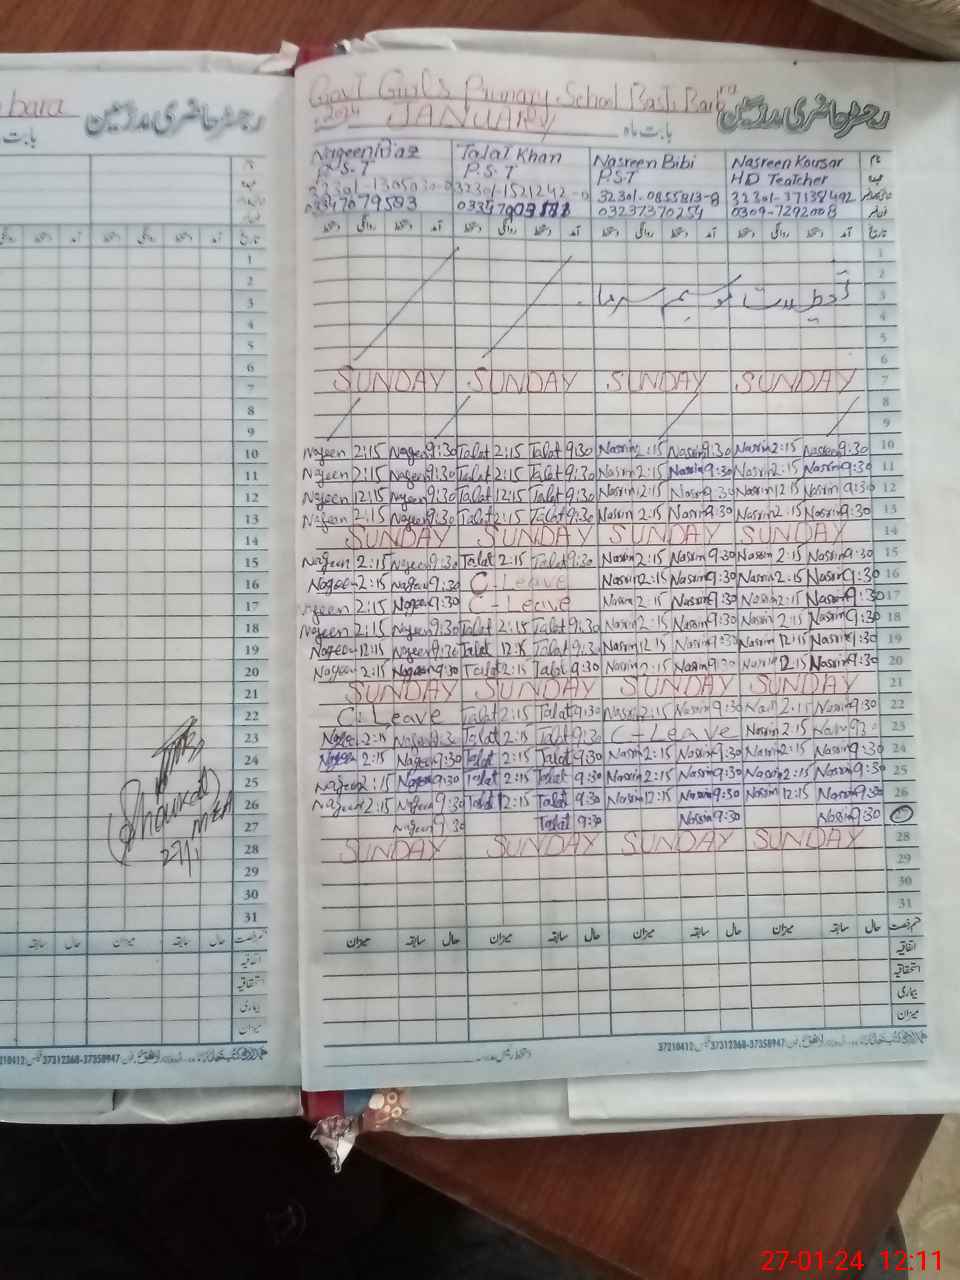 bara
رجسٹر حاضری مدرسین
بابت
Govt Girls Primary School Basti Bara
رجسٹر حاضری مدرسین
2024 JANUARY بابت ماہ
Nageen Niaz Talat Khan Nasreen Bibi Nasreen Kousar نام
P.S.T P.S.T PST HD Teatcher
03237370254 0309-7292008
دستخط روانگی دستخط آمد دستخط روانگی دستخط آمد دستخط روانگی دستخط آمد دستخط روانگی دستخط آمد تاریخ
1
2
تعطیلات موسم سرما 3
4
5
6
SUNDAY SUNDAY SUNDAY SUNDAY 7
8
9
Nageen 2:15 Nageen 9:30 Talat 2:15 Talat 9:30 Nasrin 2:15 Nasrin 9:30 Nasrin 2:15 Nasreen 9:30 10
Nageen 2:15 Nageen 9:30 Talat 2:15 Talat 9:30 Nasrin 2:15 Nasrin 9:30 Nasrin 2:15 Nasrin 9:30 11
Nageen 12:15 Nageen 9:30 Talat 12:15 Talat 9:30 Nasrin 12:15 Nasrin 9:30 Nasrin 12:15 Nasrin 9:30 12
Nageen 2:15 Nageen 9:30 Talat 2:15 Talat 9:30 Nasrin 2:15 Nasrin 9:30 Nasrin 2:15 Nasrin 9:30 13
SUNDAY SUNDAY SUNDAY SUNDAY 14
Nageen 2:15 Nageen 9:30 Talat 2:15 Talat 9:30 Nasrin 2:15 Nasrin 9:30 Nasrin 2:15 Nasrin 9:30 15
Nageen 2:15 Nageen 9:30 C-Leave Nasrin 2:15 Nasrin 9:30 Nasrin 2:15 Nasrin 9:30 16
Nageen 2:15 Nageen 9:30 C-Leave Nasrin 2:15 Nasrin 9:30 Nasrin 2:15 Nasrin 9:30 17
Nageen 2:15 Nageen 9:30 Talat 2:15 Talat 9:30 Nasrin 2:15 Nasrin 9:30 Nasrin 2:15 Nasrin 9:30 18
Nageen 12:15 Nageen 9:30 Talat 12:15 Talat 9:30 Nasrin 12:15 Nasrin 9:30 Nasrin 12:15 Nasrin 9:30 19
Nageen 2:15 Nageen 9:30 Talat 2:15 Talat 9:30 Nasrin 2:15 Nasrin 9:30 Nasrin 2:15 Nasrin 9:30 20
SUNDAY SUNDAY SUNDAY SUNDAY 21
C-Leave Talat 2:15 Talat 9:30 Nasrin 2:15 Nasrin 9:30 2:15 Nasrin 9:30 22
2:15 Nageen Talat 2:15 Talat 9:30 C-Leave Nasrin 2:15 23
Nageen 2:15 Nageen 9:30 Talat 2:15 Talat 9:30 Nasrin 2:15 Nasrin 9:30 Nasrin 2:15 Nasrin 9:30 24
Nageen 2:15 Nageen 9:30 Talat 2:15 Talat 9:30 Nasrin 2:15 Nasrin 9:30 Nasrin 2:15 Nasrin 9:30 25
Nageen 12:15 Nageen 9:30 Talat 12:15 Talat 9:30 Nasrin 12:15 Nasrin 9:30 Nasrin 12:15 Nasrin 9:30 26
Nageen 9:30 Talat 9:30 Nasrin 9:30 Nasrin 9:30 27
SUNDAY SUNDAY SUNDAY SUNDAY 28
29
30
31
میزان سابقہ حال میزان سابقہ حال میزان سابقہ حال میزان سابقہ حال قسم رخصت
اتفاقیہ
استحقاقیہ
بیماری
میزان
37210412 37312368-37358947
Shoukat
MEA
27/1
27-01-24 12:11